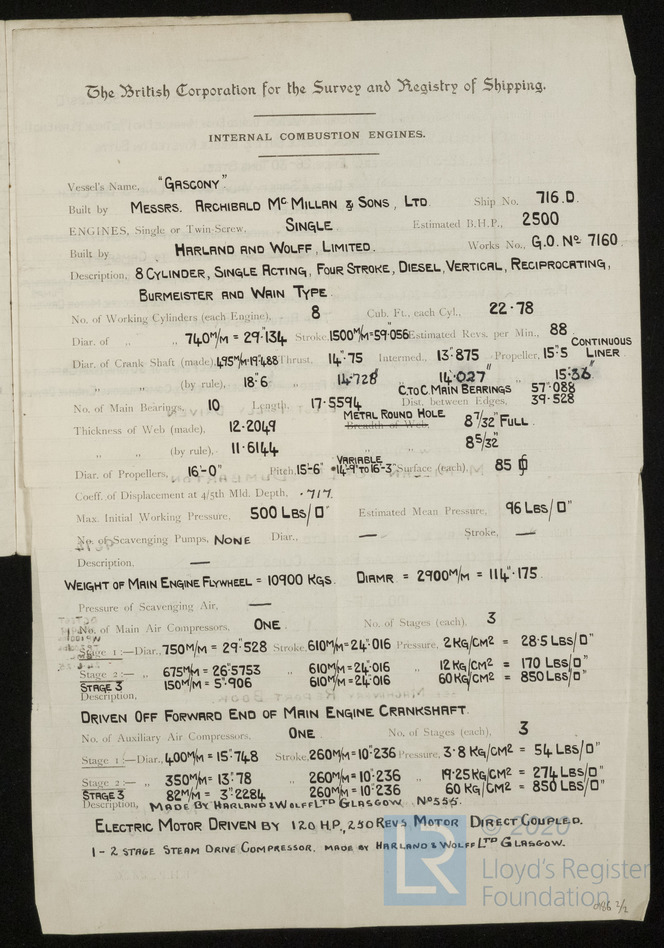 The British Corporation for the Survey and Registry of Shipping.
INTERNAL COMBUSTION ENGINES.
Vessel's Name, "GASCONY"
Built by MESSRS. ARCHIBALD Mc MILLAN & SONS, LTD. Ship No. 716.D.
ENGINES, Single or Twin-Screw, SINGLE Estimated B.H.P., 2500
Built by HARLAND AND WOLFF, LIMITED. Works No., G.O. No 7160.
Description, 8 CYLINDER, SINGLE ACTING, FOUR STROKE, DIESEL, VERTICAL, RECIPROCATING,
BURMEISTER AND WAIN TYPE.
No. of Working Cylinders (each Engine), 8 Cub. Ft., each Cyl., 22·78
Diar. of „ „ 740M/M = 29"·134 Stroke, 1500M/M=59·056 Estimated Revs. per Min., 88
Diar. of Crank Shaft (made), 495M/M·19"·488 Thrust, 14"·75 Intermed., 13"·875 Propeller, 15"·5 CONTINUOUS LINER
„ „ (by rule), 18·6 „ 14·728" „ 14·027" „ 15·36"
No. of Main Bearings, 10 Length, 17·5594 C. TO C. MAIN BEARINGS 57"·088
Dist. between Edges, 39·528
Thickness of Web (made), 12·2049 METAL ROUND HOLE Breadth of Web, 8 7/32" FULL.
„ „ (by rule), 11·6144 „ 8 5/32"
Diar. of Propellers, 16'-0" Pitch, 15'-6" VARIABLE =14'-9" TO 16'-3" Surface (each), 85
Coeff. of Displacement at 4/5th Mld. Depth, ·717.
Max. Initial Working Pressure, 500 LBS/□" Estimated Mean Pressure, 96 LBS/□"
No. of Scavenging Pumps, NONE Diar., — Stroke, —
Description, —
WEIGHT OF MAIN ENGINE FLYWHEEL = 10900 KGS. DIAMR = 2900M/M = 114"·175
Pressure of Scavenging Air, —
No. of Main Air Compressors, ONE No. of Stages (each), 3
Stage 1:—Diar., 750M/M = 29"·528 Stroke, 610M/M=24"·016 Pressure, 2 KG/CM2 = 28·5 LBS/□"
Stage 2:— „ 675M/M = 26"·5753 „ 610M/M=24"·016 „ 12 KG/CM2 = 170 LBS/□"
STAGE 3 150M/M = 5"·906 610M/M=24"·016 60 KG/CM2 = 850 LBS/□"
Description,
DRIVEN OFF FORWARD END OF MAIN ENGINE CRANKSHAFT.
No. of Auxiliary Air Compressors, ONE No. of Stages (each), 3
Stage 1:—Diar., 400M/M = 15"·748 Stroke, 260M/M=10"·236 Pressure, 3·8 KG/CM2 = 54 LBS/□"
Stage 2:— „ 350M/M = 13"·78 „ 260M/M=10"·236 „ 19·25 KG/CM2 = 274 LBS/□"
STAGE 3 82M/M = 3"·2284 260M/M=10"·236 60 KG/CM2 = 850 LBS/□"
Description, MADE BY HARLAND & WOLFF LTD GLASGOW. No 555.
ELECTRIC MOTOR DRIVEN BY 120 H.P., 250 REVS MOTOR DIRECT COUPLED.
1 - 2 STAGE STEAM DRIVE COMPRESSOR. MADE BY HARLAND & WOLFF LTD GLASGOW.
© 2020
LR
Lloyd's Register
Foundation
2/2